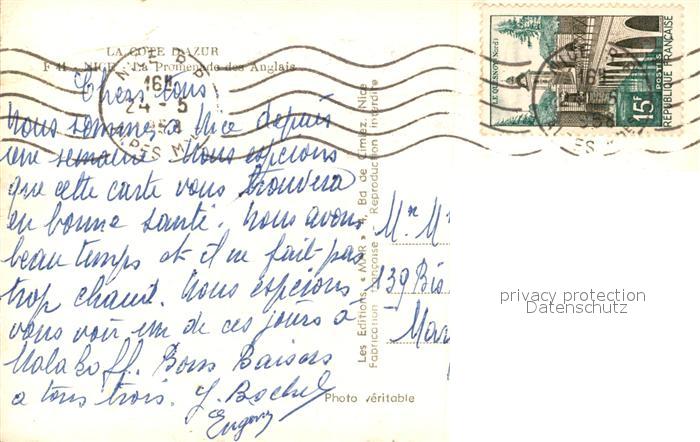 LA COTE D'AZUR
F 41 - NICE - La Promenade des Anglais
Chers tous
Nous sommes à Nice depuis
une semaine. Nous espérons
que cette carte vous trouvera
en bonne santé. Nous avons
beau temps et il ne fait pas
trop chaud. Nous espérons
vous voir un de ces jours à
Malakoff. Bons Baisers
a tous trois.
Photo véritable
Les Editions « MAR » 4, Bd de Cimiez, Nice
Fabrication française - Reproduction interdite
16H
24 - 5
LE QUESNOY (Nord)
15F
POSTES
REPUBLIQUE FRANÇAISE
16H
1958
139 Bis
privacy protection
Datenschutz